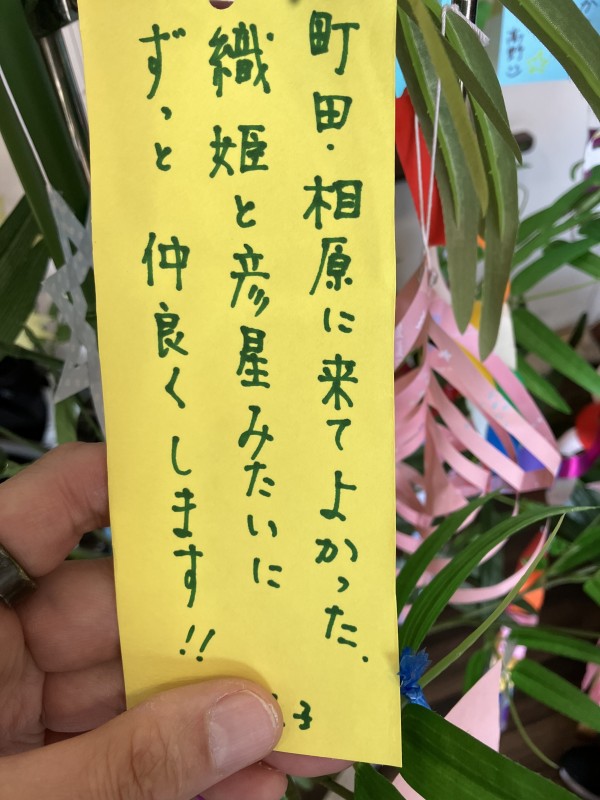 町田・相原に来てよかった.
織姫と彦星みたいに
ずっと 仲良くします!!
子
高野